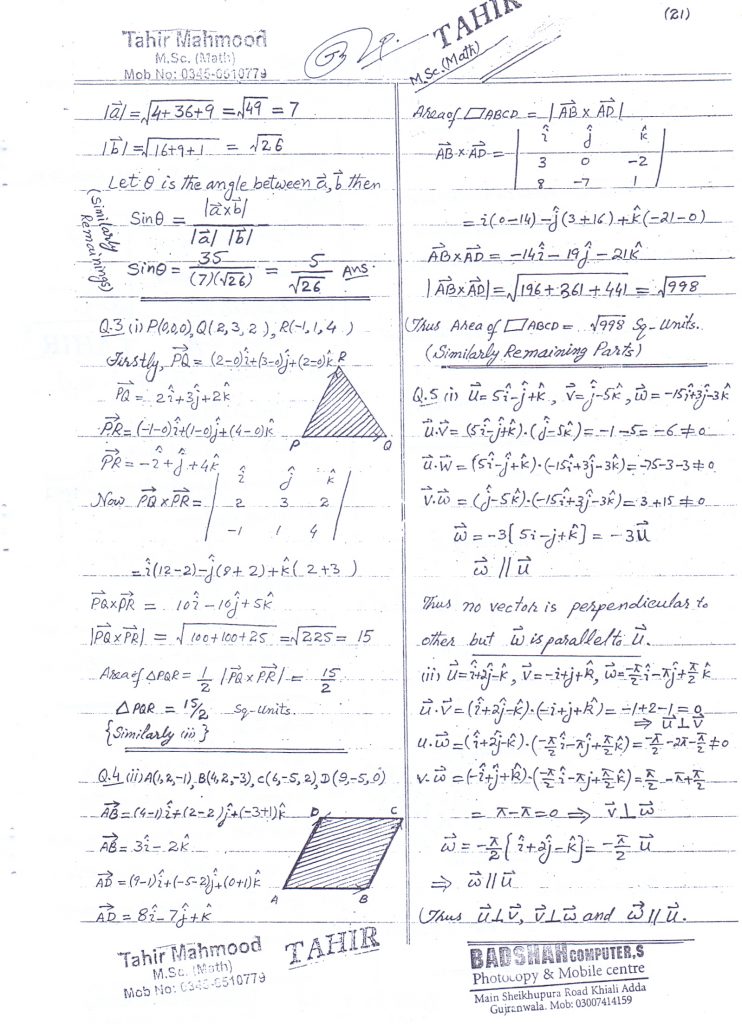 (21)
Tahir Mahmood
M.Sc. (Math)
Mob No: 0345-6510779
TAHIR
M.Sc. (Math)
|a⃗| = √4+36+9 = √49 = 7
|b⃗| = √16+9+1 = √26
Let θ is the angle between a⃗, b⃗ then
Sinθ = |a⃗×b⃗| / |a⃗| |b⃗|
Sinθ = 35 / (7)(√26) = 5 / √26 Ans.
(Similarly Remainings)
Q.3 (i) P(0,0,0), Q(2,3,2), R(-1,1,4)
Firstly, PQ⃗ = (2-0)î+(3-0)ĵ+(2-0)k̂
PQ⃗ = 2î+3ĵ+2k̂
PR⃗ = (-1-0)î+(1-0)ĵ+(4-0)k̂
PR⃗ = -î+ĵ+4k̂
R
P Q
Now PQ⃗×PR⃗ = | î ĵ k̂
2 3 2
-1 1 4 |
= î(12-2)-ĵ(8+2)+k̂(2+3)
PQ⃗×PR⃗ = 10î-10ĵ+5k̂
|PQ⃗×PR⃗| = √100+100+25 = √225 = 15
Area of △PQR = 1/2 |PQ⃗×PR⃗| = 15/2
△PQR = 15/2 Sq-Units.
{Similarly (ii)}
Q.4 (ii) A(1,2,-1), B(4,2,-3), C(6,-5,2), D(9,-5,0)
AB⃗ = (4-1)î+(2-2)ĵ+(-3+1)k̂
AB⃗ = 3î-2k̂
AD⃗ = (9-1)î+(-5-2)ĵ+(0+1)k̂
AD⃗ = 8î-7ĵ+k̂
D C
A B
Area of ▱ABCD = |AB⃗×AD⃗|
AB⃗×AD⃗ = | î ĵ k̂
3 0 -2
8 -7 1 |
= i(0-14)-ĵ(3+16)+k̂(-21-0)
AB⃗×AD⃗ = -14î-19ĵ-21k̂
|AB⃗×AD⃗| = √196+361+441 = √998
Thus Area of ▱ABCD = √998 Sq-Units.
(Similarly Remaining Parts)
Q.5 (i) u⃗ = 5î-ĵ+k̂, v⃗ = ĵ-5k̂, w⃗ = -15î+3ĵ-3k̂
u⃗.v⃗ = (5î-ĵ+k̂).(ĵ-5k̂) = -1-5 = -6 ≠ 0
u⃗.w⃗ = (5î-ĵ+k̂).(-15î+3ĵ-3k̂) = -75-3-3 ≠ 0
v⃗.w⃗ = (ĵ-5k̂).(-15î+3ĵ-3k̂) = 3+15 ≠ 0
w⃗ = -3[5i-j+k̂] = -3u⃗
w⃗ // u⃗
Thus no vector is perpendicular to
other but w⃗ is parallel to u⃗.
(ii) u⃗ = î+2ĵ-k̂, v⃗ = -i+j+k̂, w⃗ = -π/2 î-πĵ+π/2 k̂
u⃗.v⃗ = (î+2ĵ-k̂).(-i+j+k̂) = -1+2-1 = 0
⇒ u⃗⊥v⃗
u.w⃗ = (î+2ĵ-k̂).(-π/2 î-πĵ+π/2 k̂) = -π/2-2π-π/2 ≠ 0
v.w⃗ = (-î+ĵ+k̂).(-π/2 î-πj+π/2 k̂) = π/2-π+π/2
= π-π = 0 ⇒ v⃗⊥w⃗
w⃗ = -π/2 {î+2ĵ-k̂} = -π/2 u⃗
⇒ w⃗ // u⃗
Thus u⃗⊥v⃗, v⃗⊥w⃗ and w⃗ // u⃗.
Tahir Mahmood
M.Sc. (Math)
Mob No: 0345-6510779
TAHIR
BADSHAH COMPUTER,S
Photocopy & Mobile centre
Main Sheikhupura Road Khiali Adda
Gujranwala. Mob: 03007414159